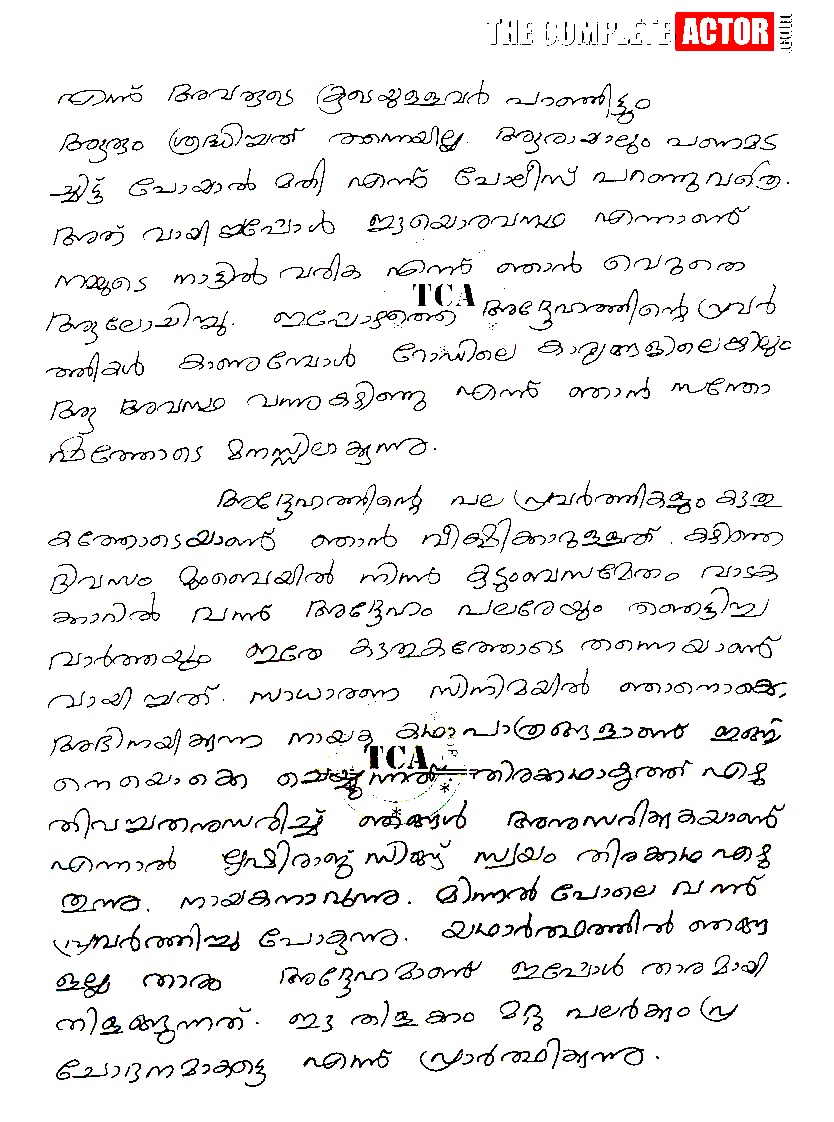 THE COMPLETE ACTOR
എന്ന് അവരുടെ കൂടെയുള്ളവർ പറഞ്ഞിട്ടും
ആരും ശ്രദ്ധിച്ചത് തന്നെയില്ല. ആരായാലും പണമട
ച്ചിട്ട് പോയാൽ മതി എന്ന് പോലീസ് പറഞ്ഞുവത്രെ.
അത് വായിച്ചപ്പോൾ ഈയൊരവസ്ഥ എന്നാണ്
നമ്മുടെ നാട്ടിൽ വരിക എന്ന് ഞാൻ വെറുതെ
TCA
ആലോചിച്ചു. ഇപ്പോഴത്തെ അദ്ദേഹത്തിന്റെ പ്രവർ
ത്തികൾ കാണുമ്പോൾ റോഡിലെ കാര്യങ്ങളിലെങ്കിലും
ആ അവസ്ഥ വന്നുകഴിഞ്ഞു എന്ന് ഞാൻ സന്തോ
ഷത്തോടെ മനസ്സിലാക്കുന്നു.
അദ്ദേഹത്തിന്റെ പല പ്രവർത്തികളും കൗതു
കത്തോടെയാണ് ഞാൻ വീക്ഷിക്കാറുള്ളത്. കഴിഞ്ഞ
ദിവസം മുംബൈയിൽ നിന്ന് കുടുംബസമേതം വാടക
ക്കാറിൽ വന്ന് അദ്ദേഹം പലരേയും ഞെട്ടിച്ച
വാർത്തയും ഇതേ കൗതുകത്തോടെ തന്നെയാണ്
വായിച്ചത്. സാധാരണ സിനിമയിൽ ഞാനൊക്കെ
അഭിനയിക്കുന്ന നായക കഥാപാത്രങ്ങളാണ് ഇങ്ങ
നെയൊക്കെ ചെയ്യുന്നത്. തിരക്കഥാകൃത്ത് എഴു
TCA
തിവച്ചതനുസരിച്ച് ഞങ്ങൾ അനുസരിക്കുകയാണ്
എന്നാൽ ഋഷിരാജ് സിങ്ങ് സ്വയം തിരക്കഥ എഴു
തുന്നു. നായകനാവുന്നു. മിന്നൽ പോലെ വന്ന്
പ്രവർത്തിച്ചു പോകുന്നു. യഥാർത്ഥത്തിൽ ഞങ്ങ
ളല്ല താരം അദ്ദേഹമാണ് ഇപ്പോൾ താരമായി
തിളങ്ങുന്നത്. ഈ തിളക്കം മറ്റു പലർക്കും പ്ര
ചോദനമാകട്ടെ എന്ന് പ്രാർത്ഥിക്കുന്നു.